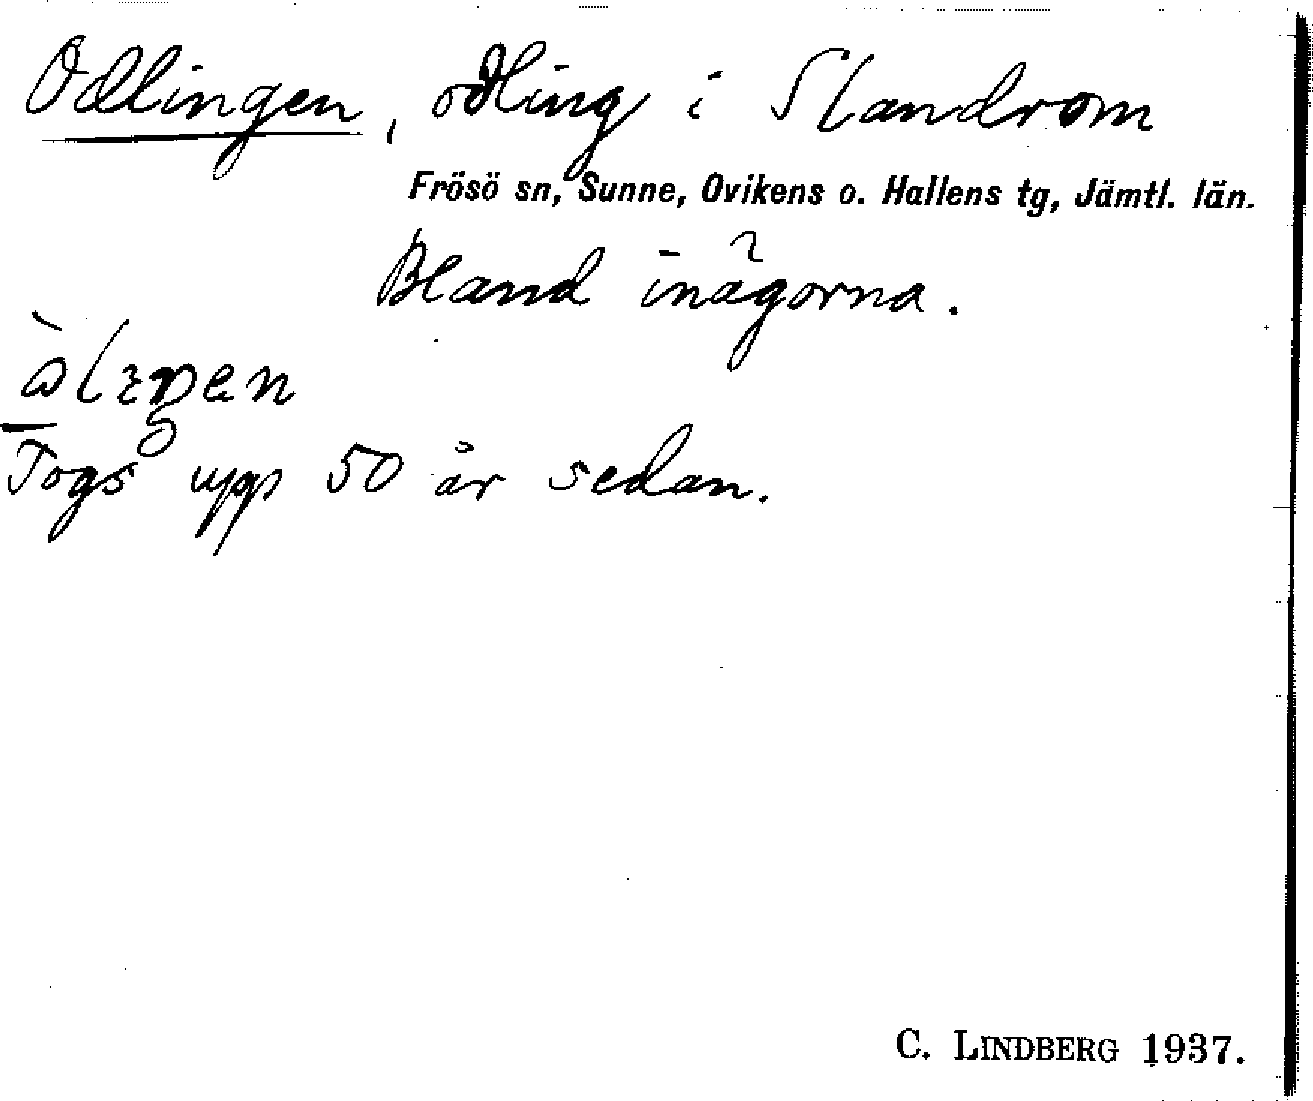 Odlingen, odling i Slandrom
Frösö sn, Sunne, Ovikens o. Hallens tg, Jämtl. län.
Bland inägorna.
Togs upp 50 år sedan.
C. LINDBERG 1937.